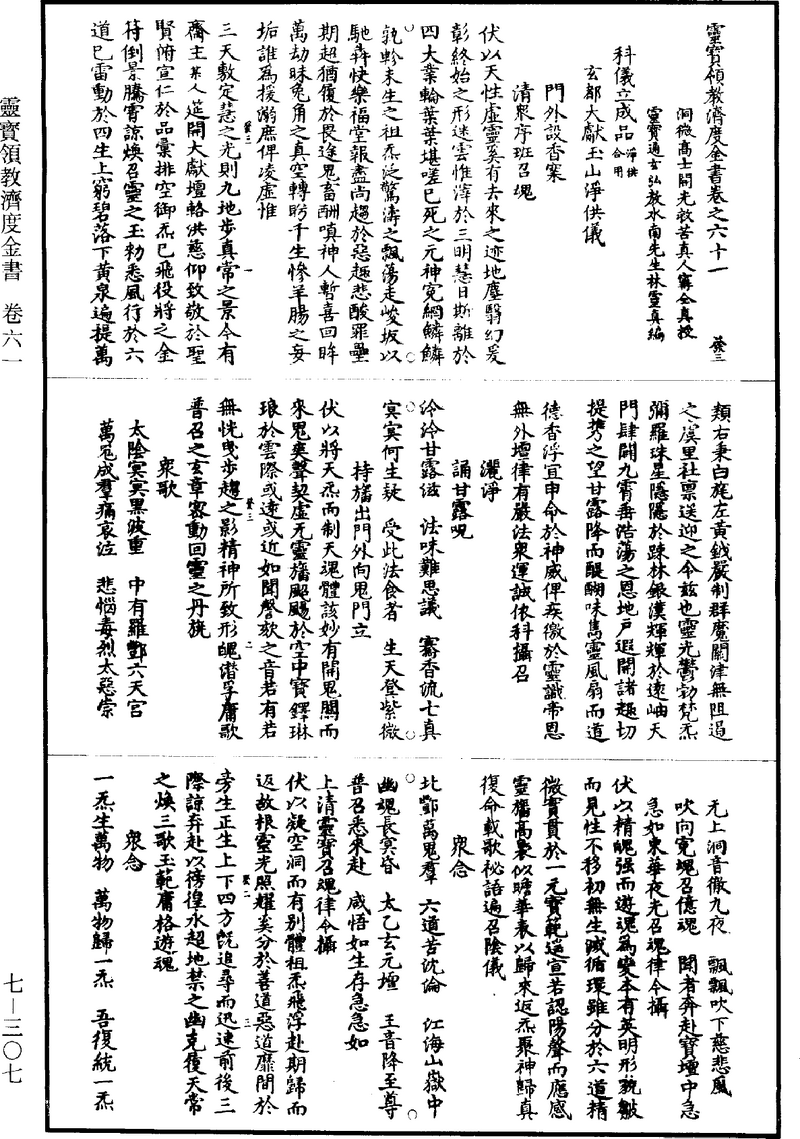 靈寶領教濟度金書卷之六十一 發三
洞微高士開光救苦真人甯全真授
靈寶通玄弘教水南先生林靈真編
科儀立成品 淨供合用
玄都大獻玉山淨供儀
門外設香案
清眾序班召魂
伏以天性虛靈奚有去來之迹地塵翳幻爰
彰終始之形迷雲惟滓於三明慧日斯離於
四大葉輪葉葉堪嗟已死之元神冤網鱗鱗
孰軫未生之祖炁泛驚濤之飄蕩走峻坂以
馳犇快樂福堂報盡尚趨於惡趣悲酸罪壘
期超猶履於畏途鬼畜酬嗔神人暫喜回眸
萬劫昧兔角之真空轉眄千生慘羊腸之妄
垢誰為援溺庶俾凌虛惟
三天敷定慧之光則九地步真常之景今有
齋主某人莚開大獻壇輅洪慈仰致敬於聖
賢俯宣仁於品彙排空御炁已飛役將之金
符倒景騰霄諒煥召靈之玉勑悉風行於六
道已雷動於四生上窮碧落下黃泉遍提萬
類右秉白旄左黃鉞嚴制群魔關津無阻過
之虞里社稟送迎之令茲也靈光鬱勃梵炁
彌羅珠星隱隱於踈林銀漢輝輝於遠岫天
門肆開九霄弗浩蕩之恩地戶遐開諸趣切
提攜之望甘露降而醍醐味雋靈風扇而道
德香浮宜申命於神威俾疾徼於靈識帝恩
無外壇律有嚴法眾運誠依科攝召
灑淨
誦甘露呪
泠泠甘露滋 法味難思議 騫香流七真
冥冥何生疑 受此法食者 生天登紫微
持旛出門外向鬼門立
伏以將天炁而制天魂體該妙有開鬼關而
來鬼爽聲契虛无靈旛颭颺於空中寶鐸琳
琅於雲際或遠或近如聞謦欬之音若有若
無恍曳步趨之影精神所致形魄潛孚庸歌
普召之玄章密動回靈之丹旐
眾歌
太陰冥冥黑波重 中有羅酆六天宮
萬鬼成羣痛哀泣 悲惱毒烈太惡崇
无上洞音徹九夜 飄飄吹下慈悲風
吹向冤魂召億魂 聞者奔赴寶壇中急
急如東華夜光召魂律令攝
伏以精魄强而遊魂為變本有英明形貌皺
而見性不移初無生滅循環雖分於六道精
微實貫於一元寶範遥宣若認陽聲而應感
靈旛高褰似瞻華表以歸來返炁聚神歸真
復命載歌祕語遍召陰儀
眾念
北酆萬鬼羣 六道苦沈淪 江海山嶽中
幽魂長冥昏 太乙玄元壇 王音降至尊
普召悉來赴 咸悟如生存急急如
上清靈寶召魂律令攝
伏以凝空洞而有別體祖炁飛浮赴期歸而
返故根靈光照耀奚分於善道惡道靡間於
旁生正生上下四方旣追尋而迅速前後三
際諒奔赴以徬徨水超地禁之幽克復天常
之煥三歌玉範庸格遊魂
眾念
一炁生萬物 萬物歸一炁 吾復統一炁
靈寶領教濟度金書 卷六一
七—三〇七